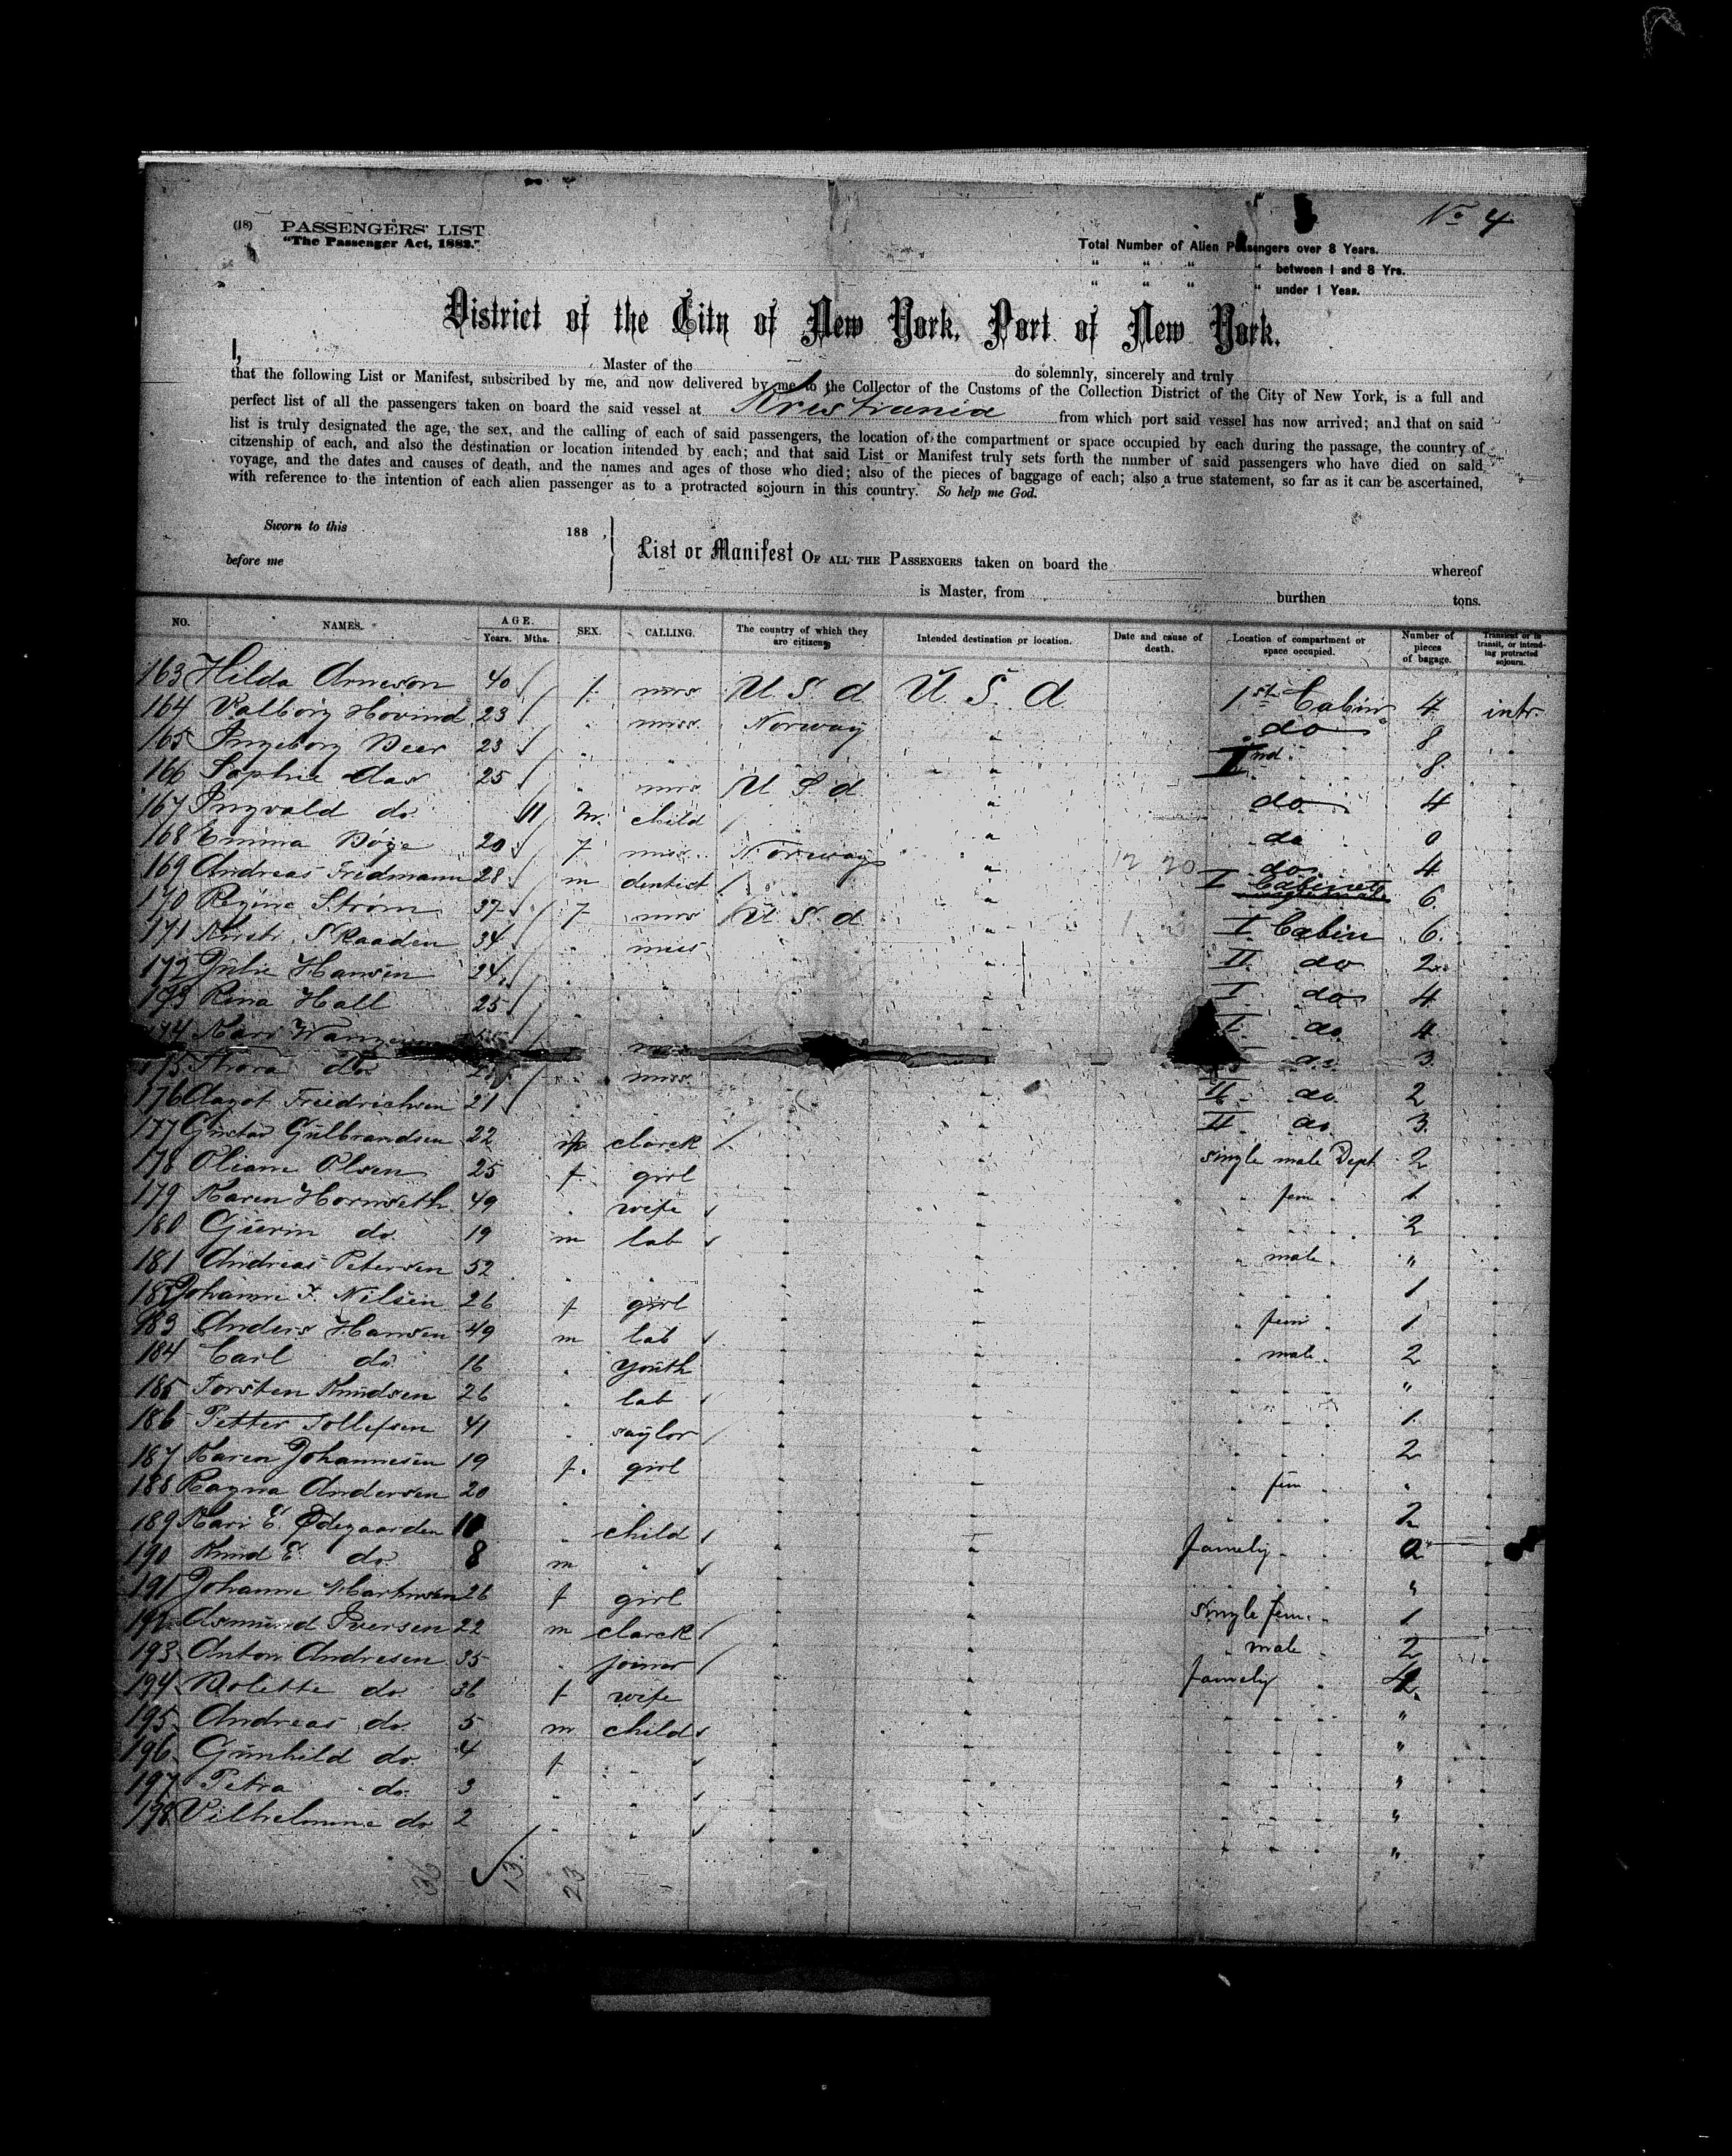 No 4
(18) PASSENGERS' LIST
"The Passenger Act, 1882."
Total Number of Alien Passengers over 8 Years.
" " " " between 1 and 8 Yrs.
" " " " under 1 Year.
District of the City of New York, Port of New York.
I, Master of the do solemnly, sincerely and truly
that the following List or Manifest, subscribed by me, and now delivered by me to the Collector of the Customs of the Collection District of the City of New York, is a full and
perfect list of all the passengers taken on board the said vessel at Kristiania from which port said vessel has now arrived; and that on said
list is truly designated the age, the sex, and the calling of each of said passengers, the location of the compartment or space occupied by each during the passage, the country of
citzenship of each, and also the destination or location intended by each; and that said List or Manifest truly sets forth the number of said passengers who have died on said
voyage, and the dates and causes of death, and the names and ages of those who died; also of the pieces of baggage of each; also a true statement, so far as it can be ascertained,
with reference to the intention of each alien passenger as to a protracted sojourn in this country. So help me God.
Sworn to this 188 ,
before me
List or Manifest OF ALL THE PASSENGERS taken on board the whereof
is Master, from burthen tons.
NO. NAMES. AGE. Years. Mths. SEX. CALLING. The country of which they are citizens Intended destination or location. Date and cause of death. Location of compartment or space occupied. Number of pieces of bagage. Transient or in transit, or intending protracted sojourn.
163 Hilda Arneson 40 f. mrs U S A U S A 1st Cabin 4 intr.
164 Valborg Hovind 23 " miss Norway " do 8
165 Ingeborg Beer 23 " " " " IInd 8
166 Sophie 25 " mrs U S A " do 4
167 Ingvald do 11 m. child " do 0
168 Emma 20 f miss Norway " do 4
169 Andreas Fredmann 28 m dentist " I 6
170 Regine Strøm 37 f mrs U. S. A " I Cabin 6.
171 Skraaden 34 " miss " II do 2
172 Julie Hansen 24 " " I do 4
173 Rina Hall 25 " " do 4
174 Kari do 3
175 Thora do miss II do 2
176 Aagot Friedrichsen 21 " II do 3
177 Gustav Gulbrandsen 22 m clarck " single male Dept 2
178 Oliane Olsen 25 f girl " " fem " 1
179 Karen Hornseth 49 " wife " " 2
180 do 19 m lab " " male " "
181 Andreas Petersen 52 " " " " 1
182 Johanne F. Nilsen 26 f girl " " fem " 1
183 Anders Hansen 49 m lab " " male " 2
184 Carl do 16 " youth " " "
185 Torsten Knudsen 26 " lab " " 1
186 Petter Tollefsen 41 " saylor " " 2
187 Karen Johannesen 19 f. girl " " fem " "
188 Ragna Andersen 20 " " " 2
189 Kari E. Ødegaarden 10 " child " famely 2
190 Knud E. do 8 m " " "
191 Johanne Martinsen 26 f girl " single fem. 1
192 Asmund Iversen 22 m clarck " " male 2
193 Anton Andresen 35 " joiner " famely
194 Dolette do 36 f wife " "
195 Andreas do 5 m child " "
196 Gunhild do 4 f " " "
197 Petra do. 3 " " " "
198 Vilhelmine do 2 " " " "
36 13 23